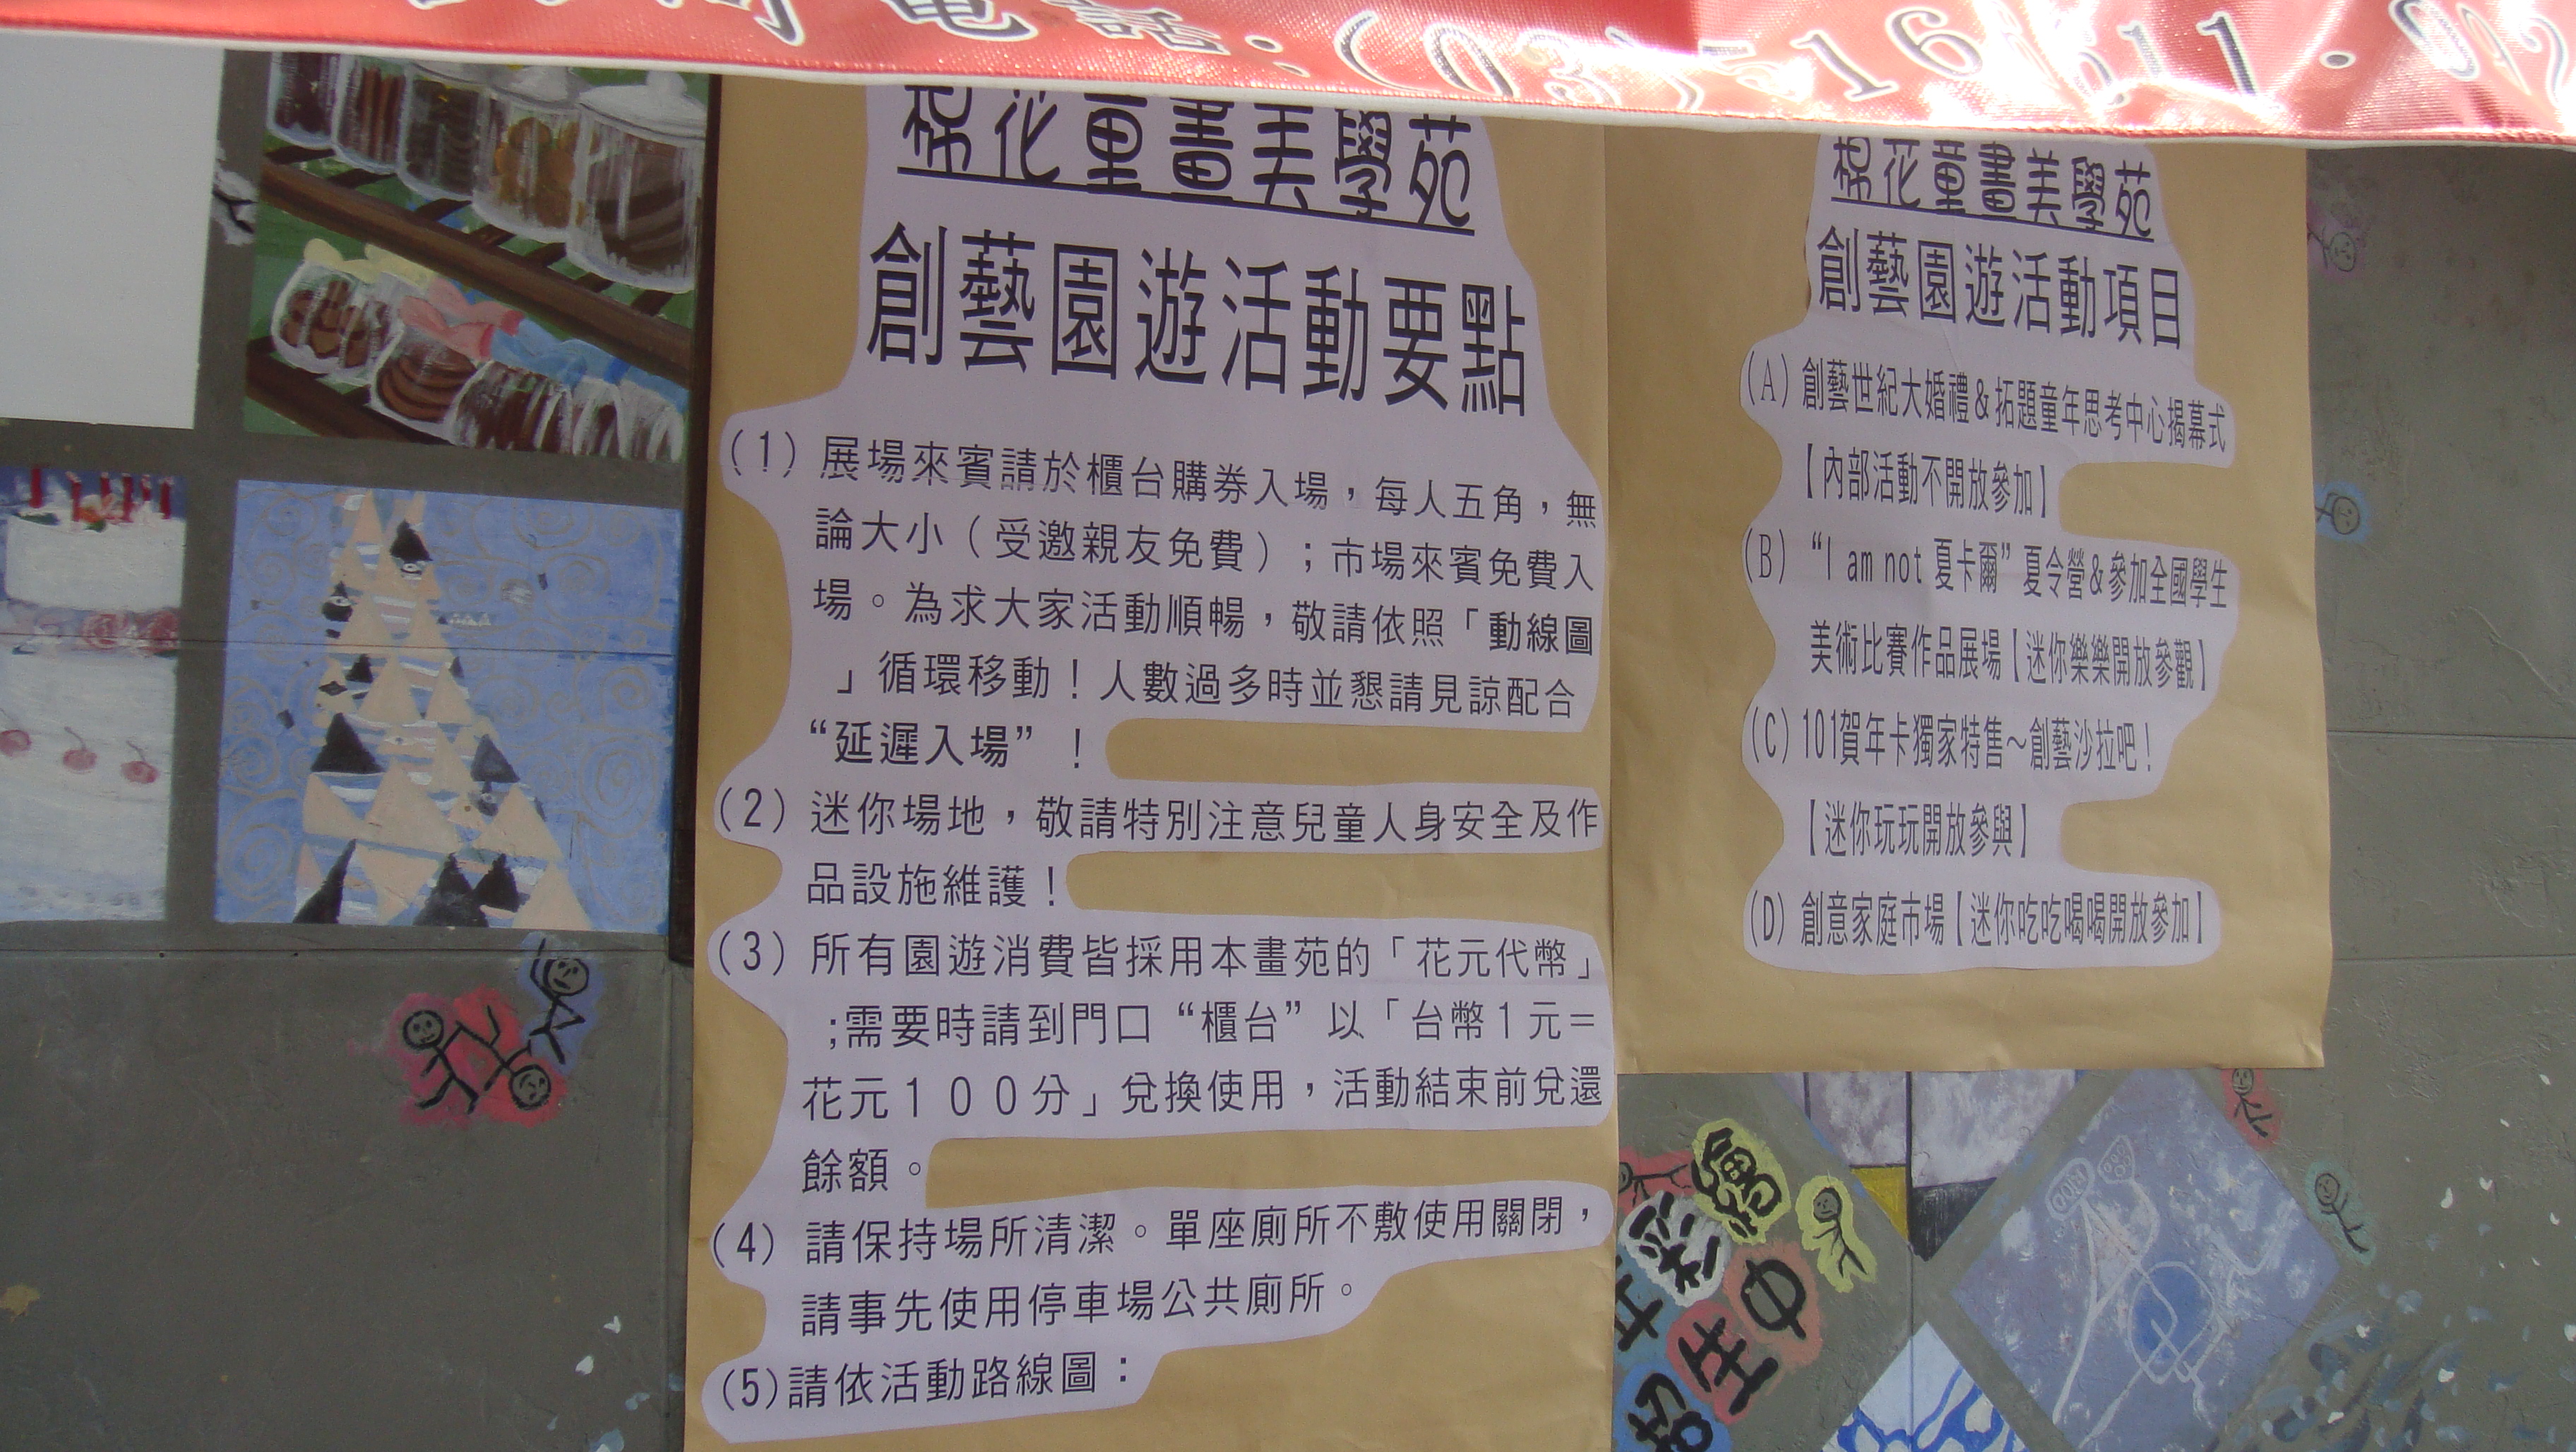 電話:(03)516611·
棉花童畫美學苑
創藝園遊活動要點
(1) 展場來賓請於櫃台購券入場，每人五角，無
論大小（受邀親友免費）；市場來賓免費入
場。為求大家活動順暢，敬請依照「動線圖
」循環移動！人數過多時並懇請見諒配合
“延遲入場”！
(2) 迷你場地，敬請特別注意兒童人身安全及作
品設施維護！
(3) 所有園遊消費皆採用本畫苑的「花元代幣」
;需要時請到門口“櫃台”以「台幣１元＝
花元１００分」兌換使用，活動結束前兌還
餘額。
(4) 請保持場所清潔。單座廁所不敷使用關閉，
請事先使用停車場公共廁所。
(5)請依活動路線圖：
棉花童畫美學苑
創藝園遊活動項目
(A) 創藝世紀大婚禮＆拓題童年思考中心揭幕式
【內部活動不開放參加】
(B) “I am not 夏卡爾”夏令營＆參加全國學生
美術比賽作品展場【迷你樂樂開放參觀】
(C) 101賀年卡獨家特售～創藝沙拉吧！
【迷你玩玩開放參與】
(D) 創意家庭市場【迷你吃吃喝喝開放參加】
繪
彩
中
生
的